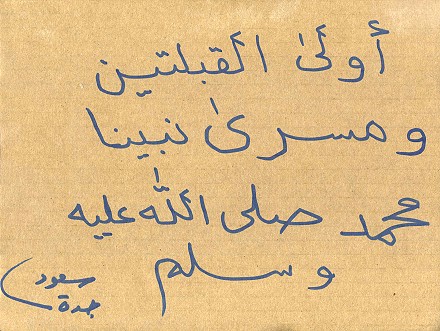 أولى القبلتين
ومسرى نبينا
محمد صلى الله عليه
وسلم
سعود
جدة